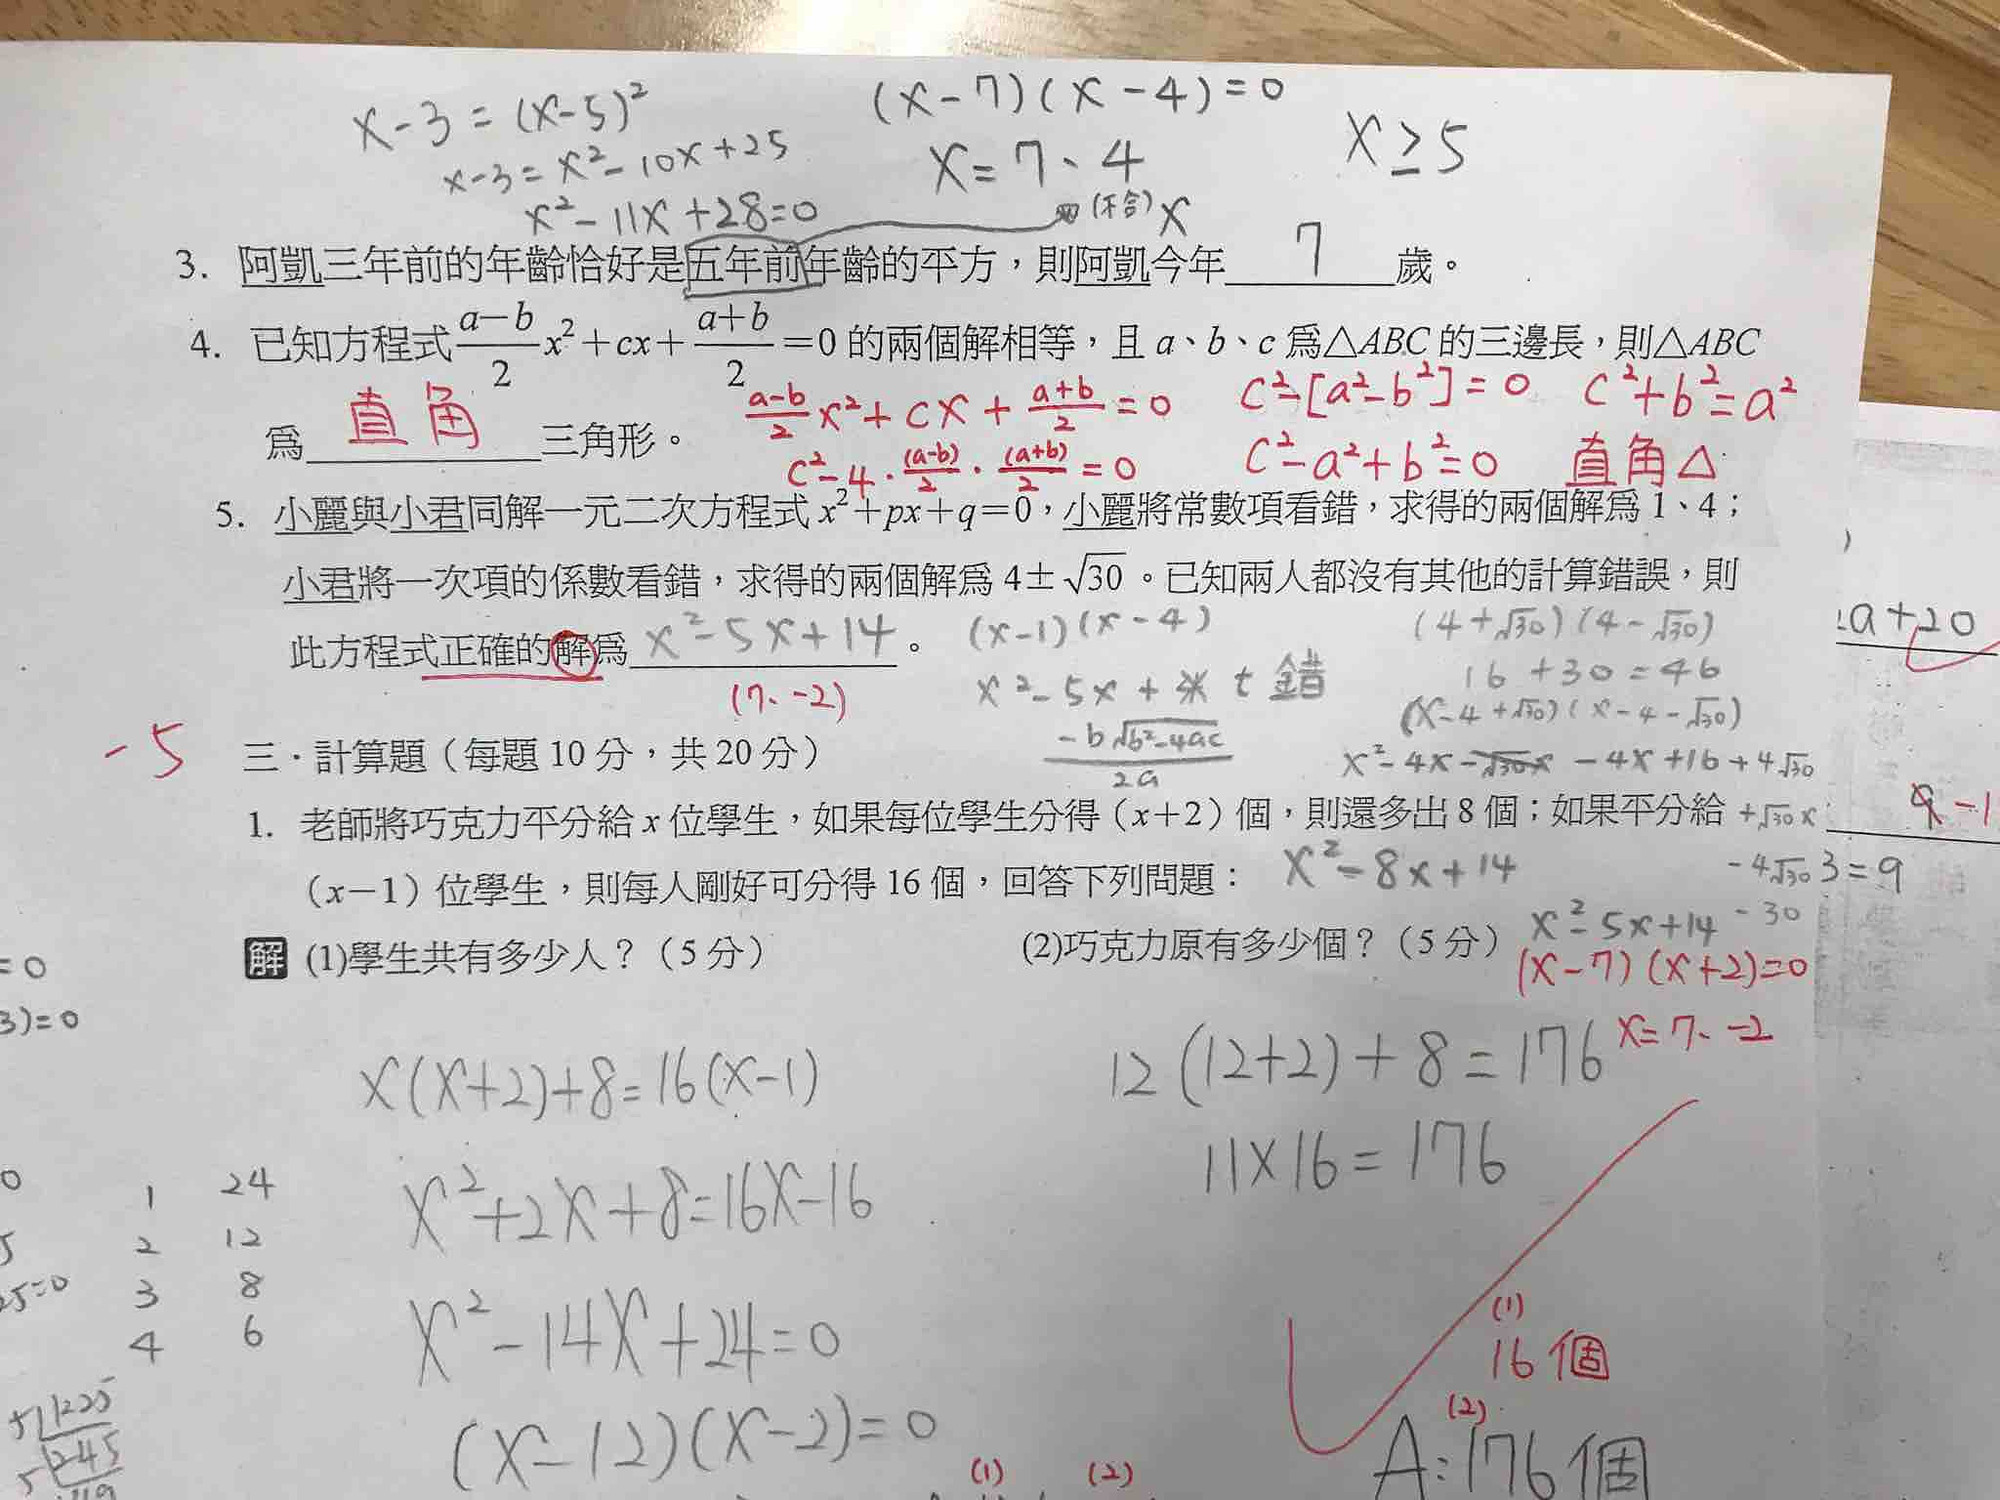 x-3=(x-5)²
x-3=x²-10x+25
x²-11x+28=0
(x-7)(x-4)=0
x=7、4
(不合)
x
x≥5
3. 阿凱三年前的年齡恰好是五年前年齡的平方，則阿凱今年 7 歲。
4. 已知方程式 (a-b)/2 x²+cx+(a+b)/2=0 的兩個解相等，且 a、b、c 為△ABC 的三邊長，則△ABC
為 直角 三角形。
(a-b)/2 x²+cx+(a+b)/2=0
c²-4·(a-b)/2·(a+b)/2=0
c²-[a²-b²]=0
c²-a²+b²=0
c²+b²=a²
直角△
5. 小麗與小君同解一元二次方程式 x²+px+q=0，小麗將常數項看錯，求得的兩個解為 1、4；
小君將一次項的係數看錯，求得的兩個解為 4±√30。已知兩人都沒有其他的計算錯誤，則
此方程式正確的解為 x²-5x+14 。
(7、-2)
(x-1)(x-4)
x²-5x+ 錯
-b√b²-4ac
2a
(4+√30)(4-√30)
16+30=46
(x-4+√30)(x-4-√30)
x²-4x-√30x-4x+16+4√30
+√30x
-4√30
-30
x²-8x+14
x²-5x+14
(x-7)(x+2)=0
x=7、-2
-5
三·計算題（每題 10 分，共 20 分）
1. 老師將巧克力平分給 x 位學生，如果每位學生分得（x+2）個，則還多出 8 個；如果平分給
（x-1）位學生，則每人剛好可分得 16 個，回答下列問題：
解 (1)學生共有多少人？（5 分）
(2)巧克力原有多少個？（5 分）
x(x+2)+8=16(x-1)
x²+2x+8=16x-16
x²-14x+24=0
(x-12)(x-2)=0
(1) (2)
12(12+2)+8=176
11×16=176
(1)
16個
(2)
A:176個
1 24
2 12
3 8
4 6
5 1225
5 245
=0
3)=0
a+20
3=9